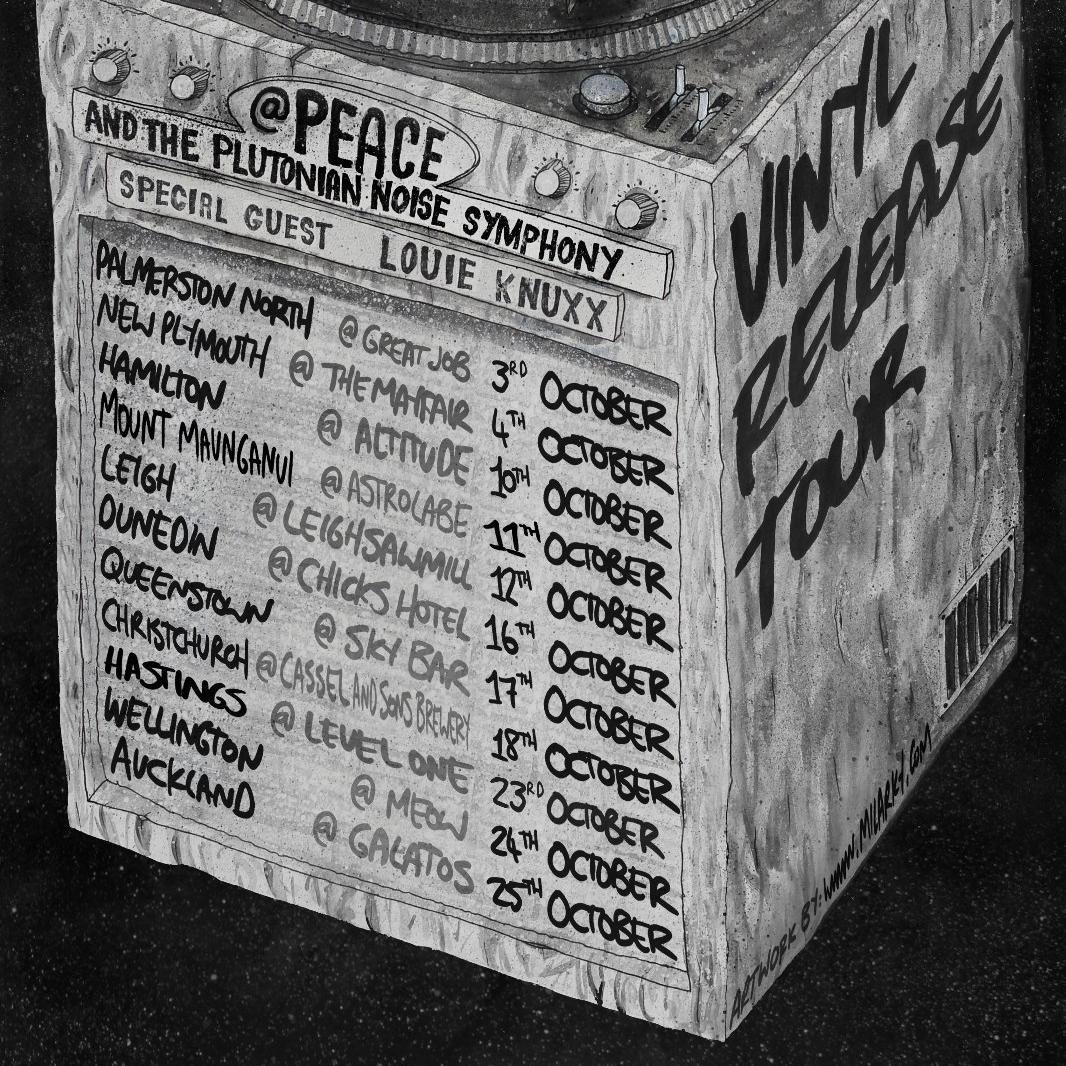 @PEACE
AND THE PLUTONIAN NOISE SYMPHONY
SPECIAL GUEST LOUIE KNUXX
PALMERSTON NORTH @ GREAT JOB 3RD OCTOBER
NEW PLYMOUTH @ THE MAYFAIR 4TH OCTOBER
HAMILTON @ ALTITUDE 10TH OCTOBER
MOUNT MAUNGANUI @ ASTROLABE 11TH OCTOBER
LEIGH @ LEIGH SAWMILL 12TH OCTOBER
DUNEDIN @ CHICKS HOTEL 16TH OCTOBER
QUEENSTOWN @ SKY BAR 17TH OCTOBER
CHRISTCHURCH @ CASSEL AND SONS BREWERY 18TH OCTOBER
HASTINGS @ LEVEL ONE 23RD OCTOBER
WELLINGTON @ MEOW 24TH OCTOBER
AUCKLAND @ GALATOS 25TH OCTOBER
VINYL
RELEASE
TOUR
ARTWORK BY: WWW.MILARKY.COM